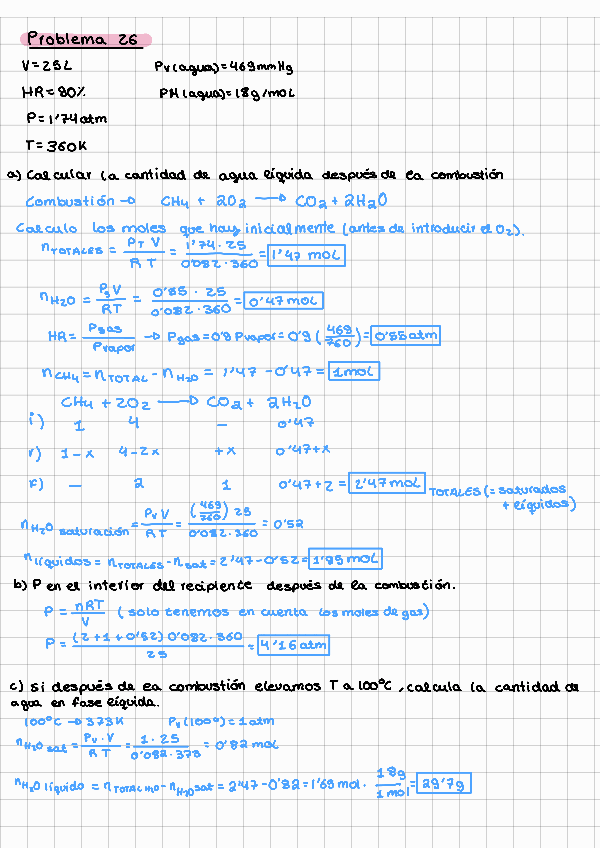 Problema 26
V = 25L Pv(agua) = 469mmHg
HR = 90% PM (agua) = 18g/mol
P = 1'74 atm
T = 360K
a) Calcular la cantidad de agua líquida después de la combustión
Combustión → CH4 + 2O2 → CO2 + 2H2O
Calculo los moles que hay inicialmente (antes de introducir el O2).
nTOTALES = PT V / R T = 1'74 · 25 / 0'082 · 360 = 1'47 mol
nH2O = Pg V / RT = 0'55 · 25 / 0'082 · 360 = 0'47 mol
HR = Pgas / Pvapor → Pgas = 0'9 Pvapor = 0'9 (469/760) = 0'55 atm
nCH4 = nTOTAL - nH2O = 1'47 - 0'47 = 1 mol
CH4 + 2O2 → CO2 + 2H2O
i) 1 4 — 0'47
r) 1-x 4-2x +x 0'47+x
F) — 2 1 0'47+2 = 2'47 mol TOTALES (= saturados
+ líquidos)
nH2O saturación = Pv V / RT = (469/760) 25 / 0'082 · 360 = 0'52
nlíquidos = nTOTALES - nsat = 2'47 - 0'52 = 1'95 mol
b) P en el interior del recipiente después de la combustión.
P = nRT / V (solo tenemos en cuenta los moles de gas)
P = (2+1+0'52) 0'082 · 360 / 25 = 4'16 atm
c) Si después de la combustión elevamos T a 100°C, calcula la cantidad de
agua en fase líquida.
100°C → 373K Pv (100°) = 1 atm
nH2O sat = Pv · V / R T = 1 · 25 / 0'082 · 373 = 0'82 mol
nH2O líquido = nTOTAL H2O - nH2O sat = 2'47 - 0'82 = 1'69 mol · 18g / 1 mol = 29'7g